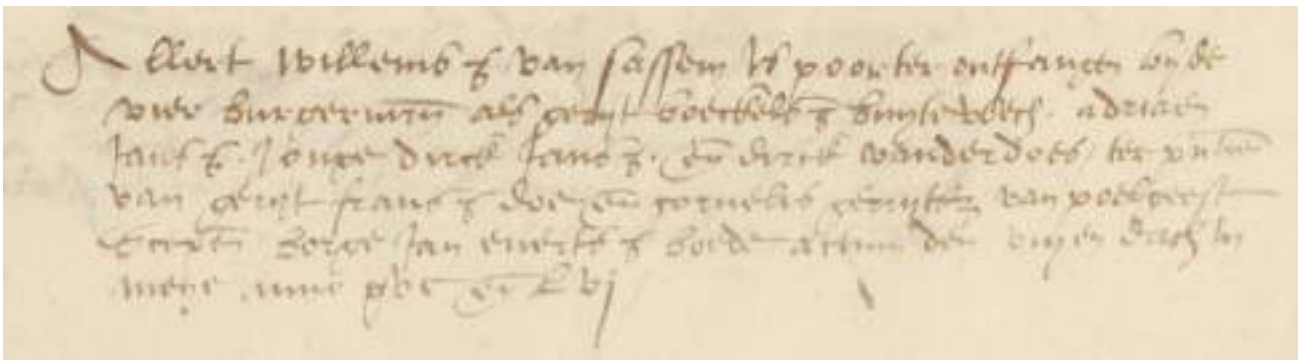 Allert willems z van sassem is poorter ontfangen bij de
vier burgermrn als gerijt boeckels z buytewech adriaen
Jans z Jonge dirck Jans z en dirck vanderdoes ter pntien
van gerijt frans z doe en cornelis gerijts z van poelgeest
borge Jan everts z bode actum den dach in
meye anno xvc en lvj